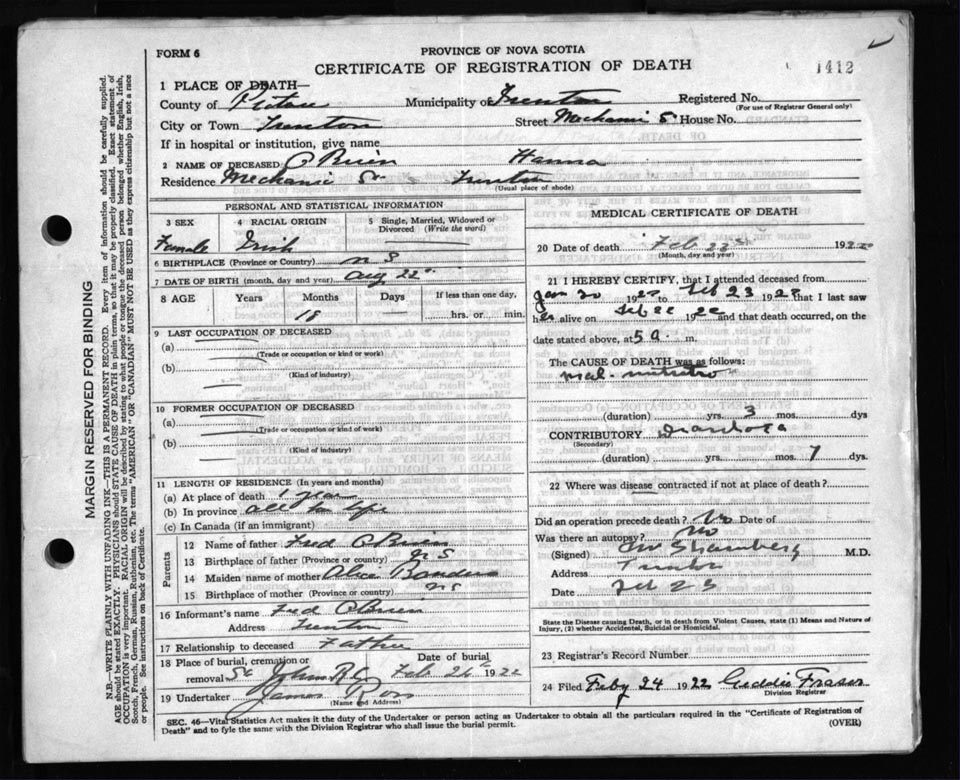 FORM 6
PROVINCE OF NOVA SCOTIA
CERTIFICATE OF REGISTRATION OF DEATH
1412
1 PLACE OF DEATH—
County of Pictou Municipality of Trenton Registered No.
(For use of Registrar General only)
City or Town Trenton Street Mechanic St House No.
If in hospital or institution, give name
2 NAME OF DECEASED O'Brien Hanna
Residence Mechanic St Trenton
(Usual place of abode)
PERSONAL AND STATISTICAL INFORMATION
3 SEX 4 RACIAL ORIGIN 5 Single, Married, Widowed or Divorced (Write the word)
Female Irish
6 BIRTHPLACE (Province or Country) N S
7 DATE OF BIRTH (month, day and year) Aug 22
8 AGE Years Months Days If less than one day,
18
hrs. or min.
9 LAST OCCUPATION OF DECEASED
(a)
(Trade or occupation or kind or work)
(b)
(Kind of industry)
10 FORMER OCCUPATION OF DECEASED
(a)
(Trade or occupation or kind of work)
(b)
(Kind of industry)
11 LENGTH OF RESIDENCE (In years and months)
(a) At place of death 1 year
(b) In province all life
(c) In Canada (if an immigrant)
Parents
12 Name of father Fred O'Brien
13 Birthplace of father (Province or country) N S
14 Maiden name of mother Alice
15 Birthplace of mother (Province or country) N S
16 Informant's name Fred O'Brien
Address Trenton
17 Relationship to deceased Father
18 Place of burial, cremation or removal St John R C Date of burial Feb 24 1922
19 Undertaker James Ross
(Name and Address)
MEDICAL CERTIFICATE OF DEATH
20 Date of death Feb 1922
(Month, day and year)
21 I HEREBY CERTIFY, that I attended deceased from
Jan 20 1922 to Feb 23 1922 that I last saw
her alive on Feb 22 1922 and that death occurred, on the
date stated above, at 5 a. m.
The CAUSE OF DEATH was as follows:
Mal-nutrition
(duration) yrs. 3 mos. dys
CONTRIBUTORY Diarrhoea
(Secondary)
(duration) yrs. mos. 7 dys.
22 Where was disease contracted if not at place of death?
Did an operation precede death? No Date of
Was there an autopsy? No
(Signed) M.D.
Address Trenton
Date Feb 23
State the Disease causing Death, or in death from Violent Causes, state (1) Means and Nature of
Injury, (2) whether Accidental, Suicidal or Homicidal.
23 Registrar's Record Number
24 Filed Feby 24 1922 Fraser
Division Registrar
SEC. 46—Vital Statistics Act makes it the duty of the Undertaker or person acting as Undertaker to obtain all the particulars required in the "Certificate of Registration of
Death" and to fyle the same with the Division Registrar who shall issue the burial permit.
(OVER)
MARGIN RESERVED FOR BINDING
N.B.—WRITE PLAINLY WITH UNFADING INK—THIS IS A PERMANENT RECORD. Every item of information should be carefully supplied.
AGE should be stated EXACTLY. PHYSICIANS should STATE CAUSE OF DEATH in plain terms, so that it may be properly classified. Exact statement of
OCCUPATION is very important. RACIAL ORIGIN will be described by stating to what people or tongue the deceased person belonged whether English, Irish,
Scotch, French, German, Russian, Ruthenian, etc. The terms "AMERICAN" OR "CANADIAN" MUST NOT BE USED as they express citizenship but not a race
or people. See instructions on back of Certificate.